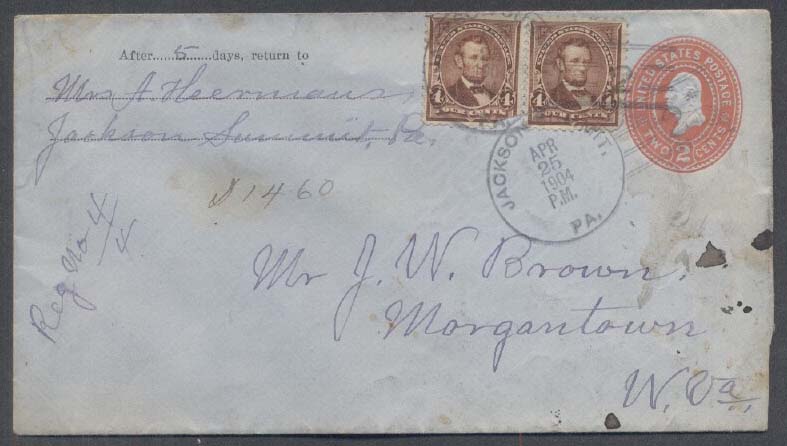 After.....5......days, return to
Mrs A Heermans,
Jackson Summit, Pa.
$1460
Reg No 4/4
FOUR CENTS
4 4
FOUR CENTS
4 4
UNITED STATES POSTAGE
TWO 2 CENTS
JACKSON
APR
25
1904
P.M.
PA.
Mr J. W. Brown,
Morgantown
W. Va,